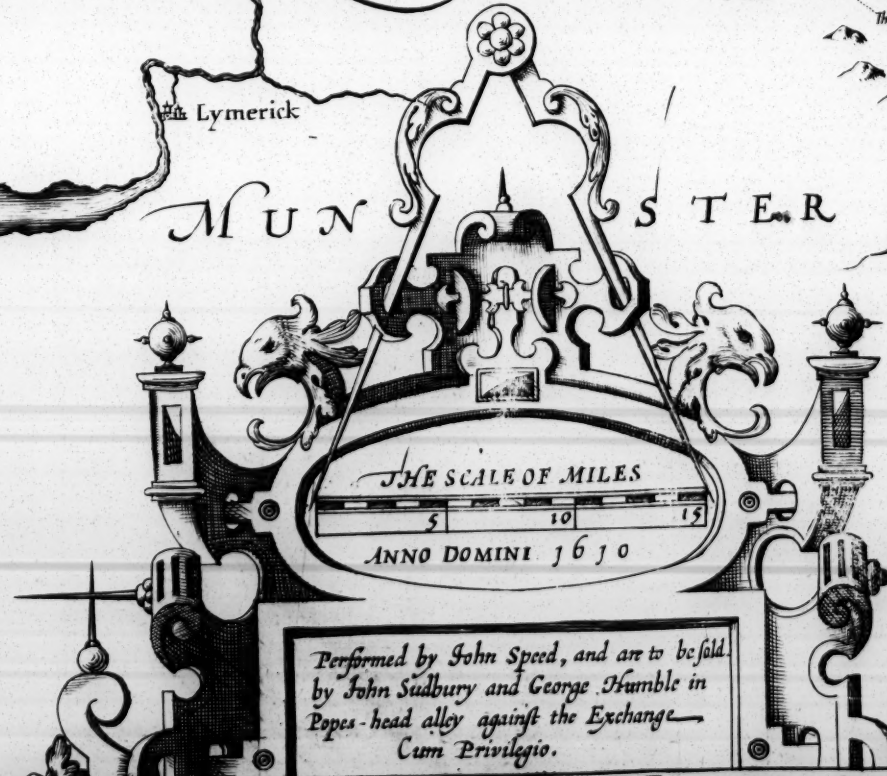 Th
Lymerick
MUNSTER
THE SCALE OF MILES
5 10 15
ANNO DOMINI 1610
Performed by John Speed, and are to be sold
by John Sudbury and George Humble in
Popes-head alley against the Exchange
Cum Privilegio.